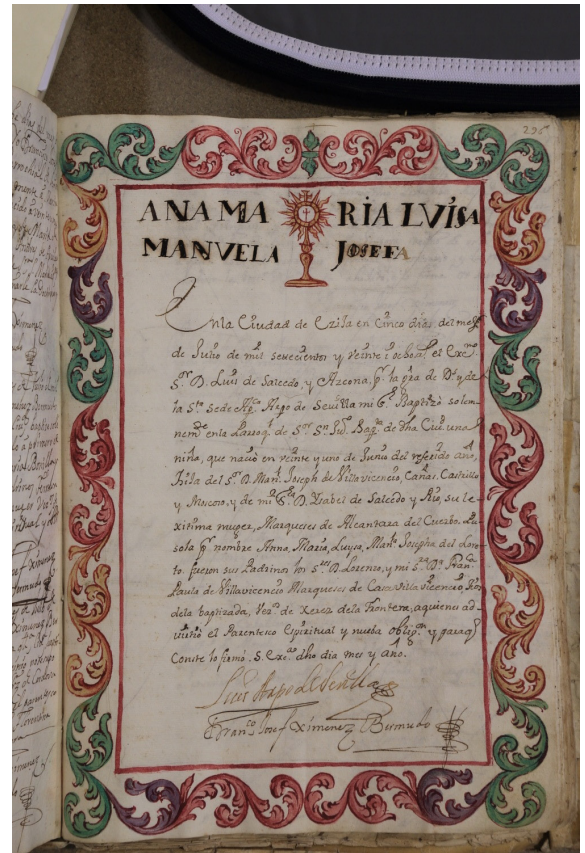 295
ANA MA RIA LVISA
MANVELA JOSEFA
En la Ciudad de Ezija en Cinco dias del mes
de Julio de mil setecientos y veinte i ocho a.ˢ el Exc.ᵐᵒ
S.ᵒʳ D. Luis de Salcedo, y Azcona, p.ʳ la gra de D.ˢ y de
la S.ᵗᵃ Sede App.ᶜᵃ Arzpo de Sevilla mi S.ʳ Baptizò solem-
nem.ᵗᵉ en la Parroq.ˡ de S.ᵒʳ S.ⁿ Ju.ᵒ Bap.ᵗᵃ de dha Ciu.ᵈ una
niña, que naciò en veinte y uno de Junio del referido año,
hija del s.ᵒʳ D. Man.ˡ Joseph de Villavicencio, Cañas, Castrillo
y Moscoso, y de mi S.ʳᵃ D. Ysabel de Salcedo y Rio, su le-
xitima muger, Marqueses de Alcantara del Cuerbo. Pu-
sola p.ʳ nombre Anna, Maria, Luysa, Man.ˡᵃ Josepha del Lore-
to. fueron sus Padrinos los s.ʳᵉˢ D. Lorenzo, y mi S.ʳᵃ D.ᵃ Fran.ᶜᵃ
Paula de Villavicencio Marqueses de Casa Villavicencio, tios
de la baptizada, Vez.ᵒˢ de Xerez de la Frontera, aquienes ad-
virtiò el Parentesco Espiritual y nueba oblig.ᵒⁿ y para q.ᵉ
Conste lo firmó. S. Exc.ᵃ dho dia mes y año.
Luis Arzpo de Sevilla
Fran.ᶜᵒ Josef Ximenez Bermudo